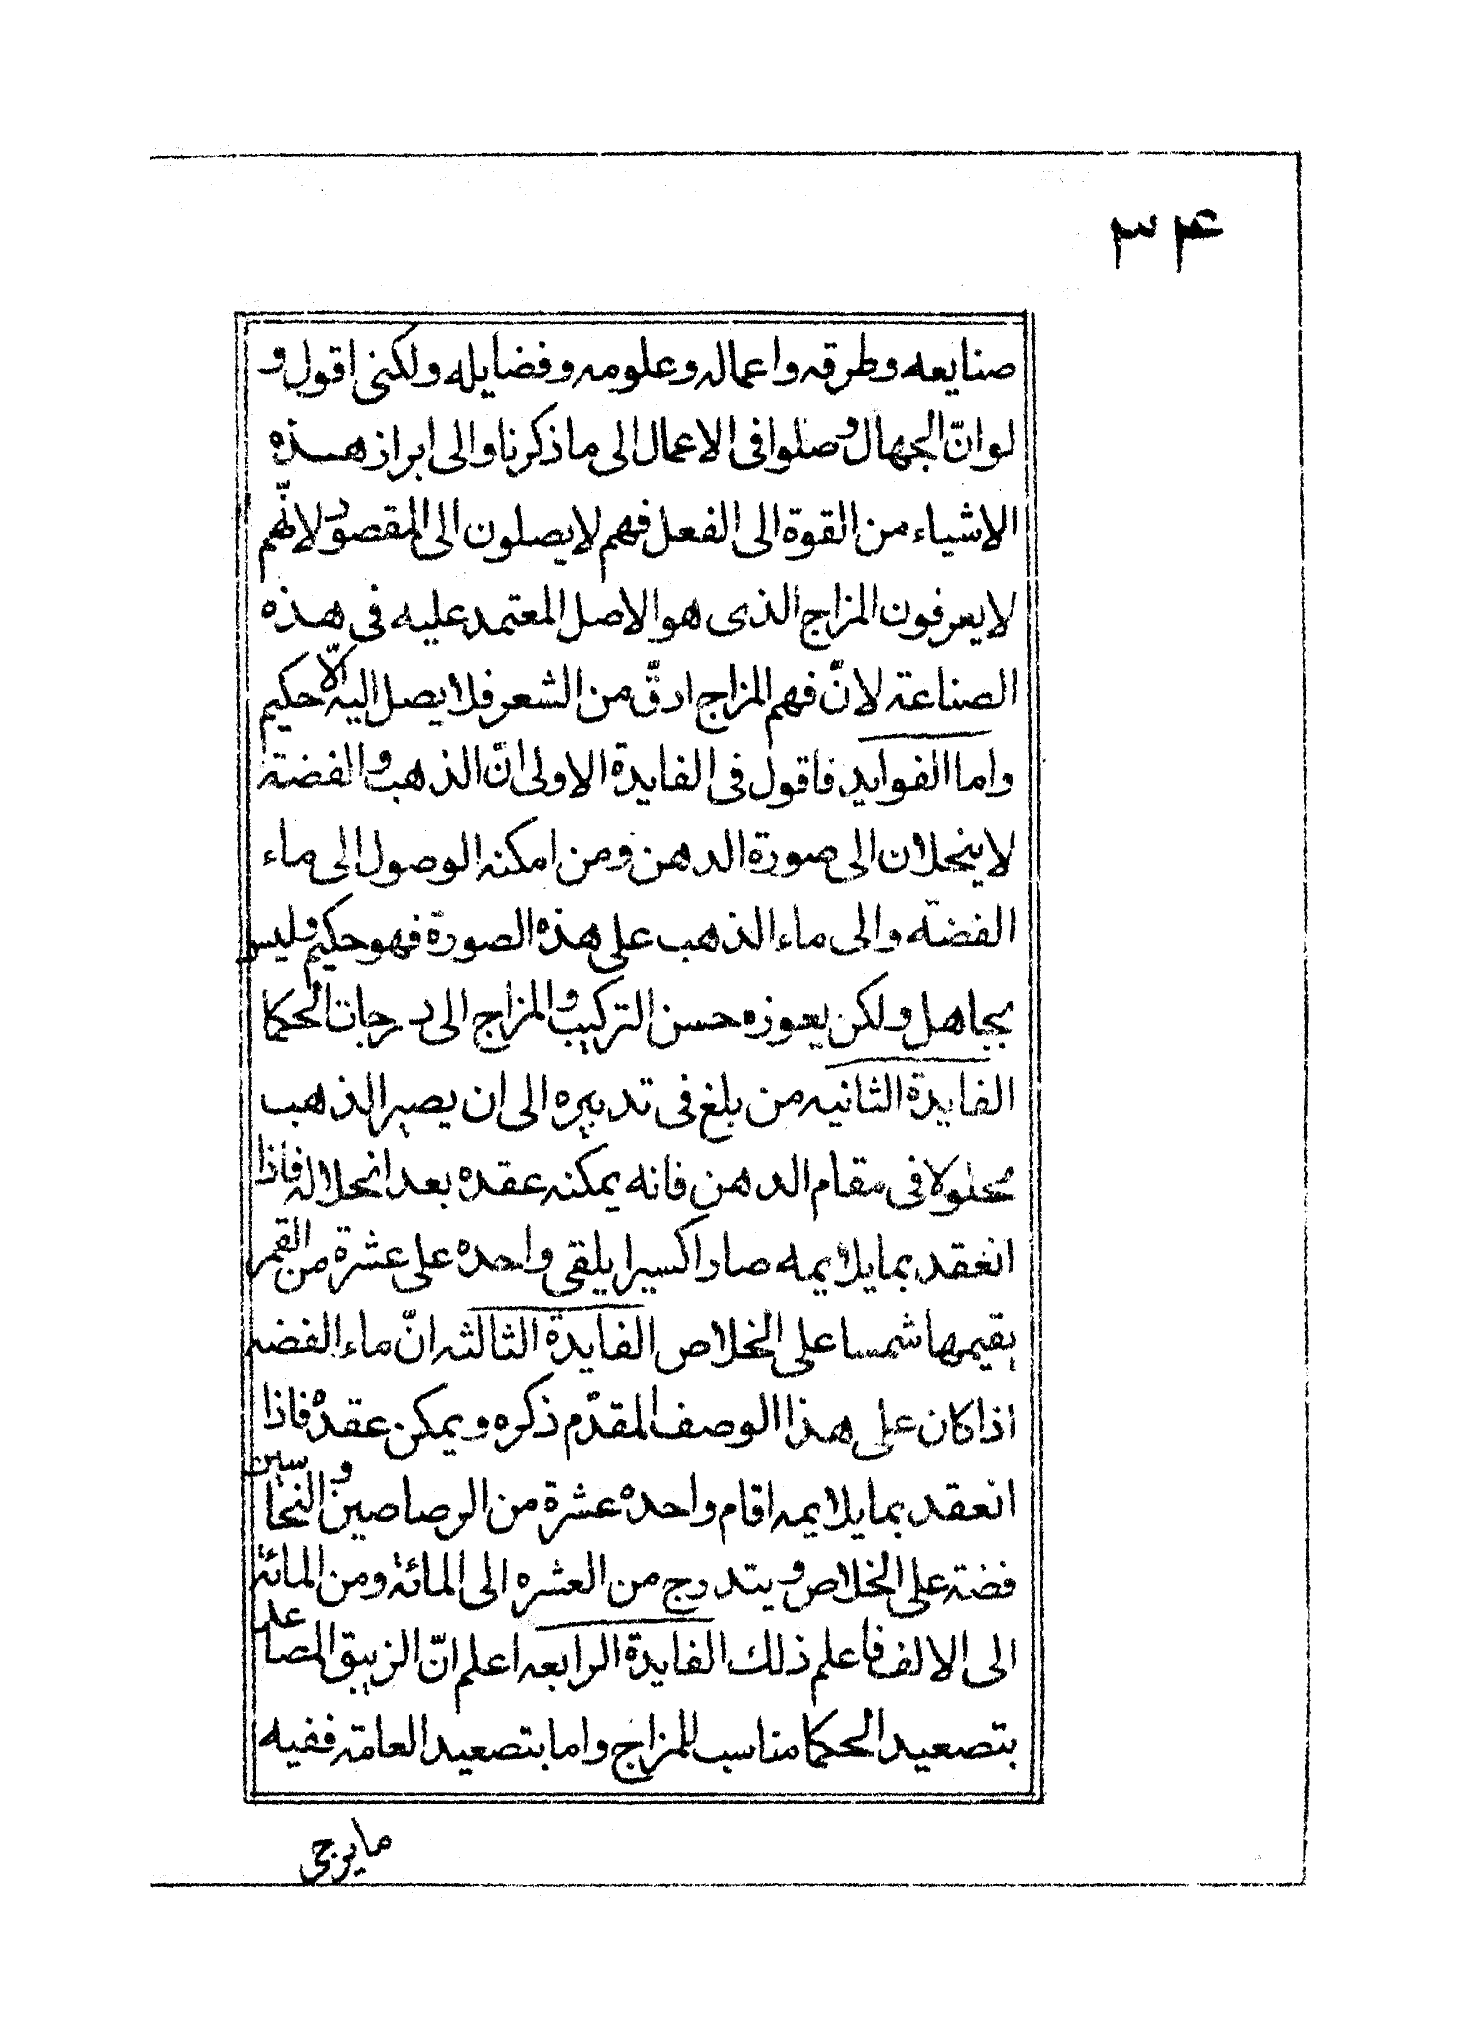 ٣۴
صنايعه وطرقه واعماله وعلومه وفضايله ولكنى اقول و
لو انّ الجهال وصلوا فى الاعمال الى ما ذكرنا والى ابراز هذه
الاشياء من القوة الى الفعل فهم لا يصلون الى المقصود لانّهم
لا يعرفون المزاج الذى هو الاصل المعتمد عليه فى هذه
الصناعة لانّ فهم المزاج ادقّ من الشعر فلا يصل اليه الّا حكيم
واما الفوايد فاقول فى الفايدة الاولى انّ الذهب والفضة
لا ينحلان الى صورة الدهن ومن امكنه الوصول الى ماء
الفضة والى ماء الذهب على هذه الصورة فهو حكيم وليس
بجاهل ولكن يعوزه حسن التركيب والمزاج الى درجات الحكما
الفايدة الثانيه من بلغ فى تدبيره الى ان يصير الذهب
محلولا فى مقام الدهن فانه يمكنه عقده بعد انحلاله فاذا
انعقد بما يلايمه صار اكسيرا يلقى واحده على عشرة من القمر
يقيمها شمسا على الخلاص الفايدة الثالثه انّ ماء الفضه
اذا كان على هذا الوصف المقدّم ذكره ويمكن عقده فاذا
انعقد بما يلايمه اقام واحده عشرة من الرصاصين والنحاسين
فضة على الخلاص ويتدرج من العشره الى المائة ومن المائة
الى الالف فاعلم ذلك الفايدة الرابعه اعلم انّ الزيبق المصاعد
بتصعيد الحكما مناسب للمزاج واما بتصعيد العامة ففيه
ما يرجى